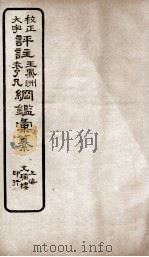 校正
大字
評註
王鳳洲
袁了凡
綱鑑彙纂
上海
文瑞樓
印行